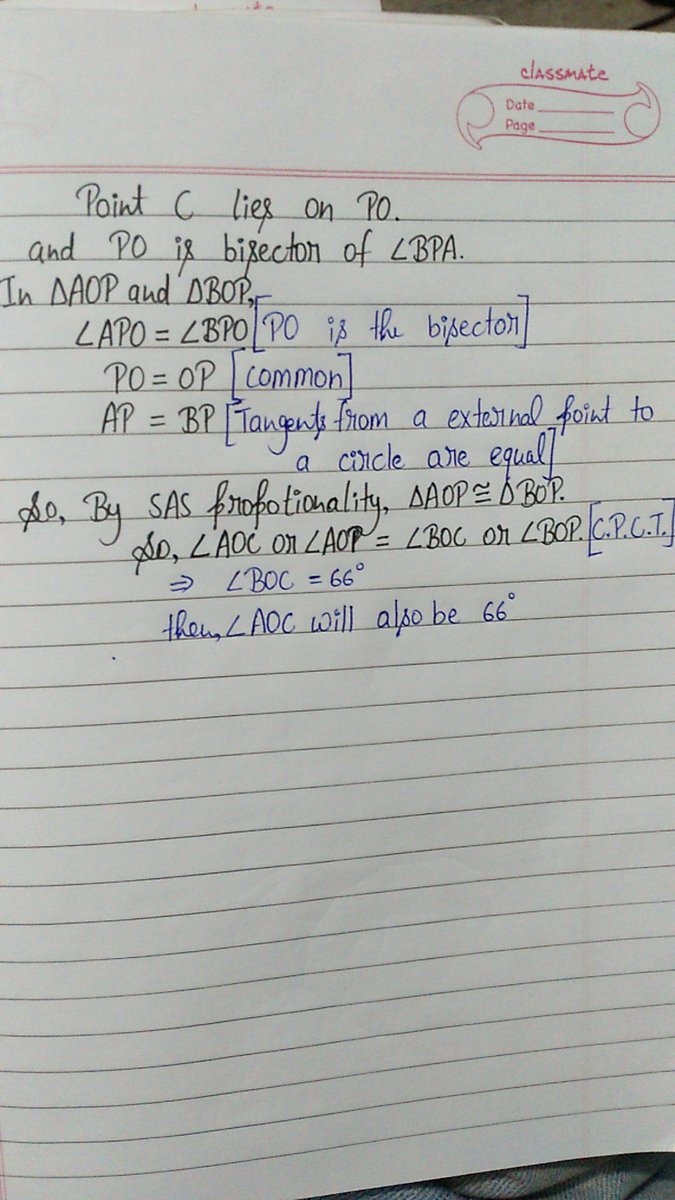 classmate
Date
Page
Point C lies on PO.
and PO is bisector of ∠BPA.
In ΔAOP and ΔBOP,
∠APO = ∠BPO [PO is the bisector]
PO = OP [common]
AP = BP [Tangents from a external point to
a circle are equal]
So, By SAS propotionality, ΔAOP ≅ ΔBOP.
So, ∠AOC or ∠AOP = ∠BOC or ∠BOP. [C.P.C.T.]
⇒ ∠BOC = 66°
then, ∠AOC will also be 66°